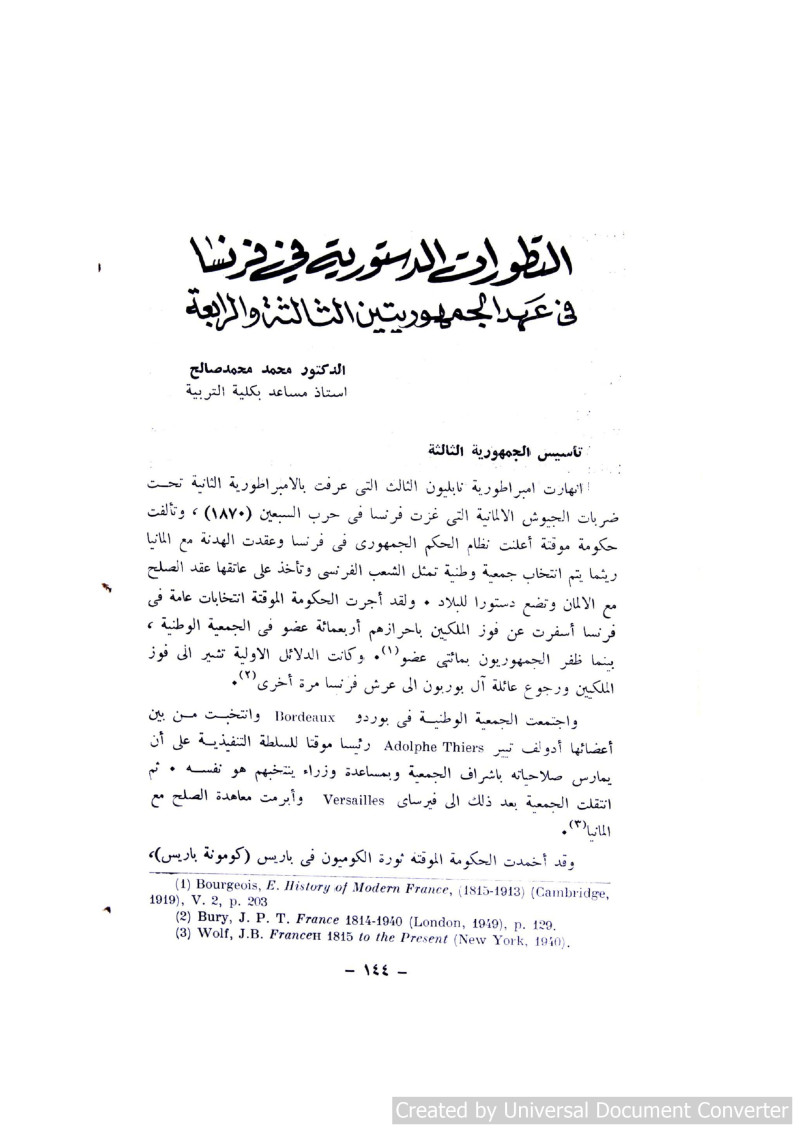 التطورات الدستورية في فرنسا
في عهد الجمهوريتين الثالثة والرابعة
الدكتور محمد محمد صالح
استاذ مساعد بكلية التربية
تأسيس الجمهورية الثالثة
انهارت امبراطورية نابليون الثالث التى عرفت بالامبراطورية الثانية تحت
ضربات الجيوش الالمانية التى غزت فرنسا فى حرب السبعين (١٨٧٠) ، وتألفت
حكومة موقتة أعلنت نظام الحكم الجمهورى فى فرنسا وعقدت الهدنة مع المانيا
ريثما يتم انتخاب جمعية وطنية تمثل الشعب الفرنسى وتأخذ على عاتقها عقد الصلح
مع الالمان وتضع دستورا للبلاد . ولقد أجرت الحكومة الموقتة انتخابات عامة فى
فرنسا أسفرت عن فوز الملكين باحرازهم أربعمائة عضو فى الجمعية الوطنية ،
بينما ظفر الجمهوريون بمائتى عضو(١). وكانت الدلائل الاولية تشير الى فوز
الملكيين ورجوع عائلة آل بوربون الى عرش فرنسا مرة أخرى(٢).
واجتمعت الجمعية الوطنية فى بوردو Bordeaux وانتخبت من بين
أعضائها أدولف تيير Adolphe Thiers رئيسا موقتا للسلطة التنفيذية على أن
يمارس صلاحياته باشراف الجمعية وبمساعدة وزراء ينتخبهم هو نفسه . ثم
انتقلت الجمعية بعد ذلك الى فيرساى Versailles وأبرمت معاهدة الصلح مع
المانيا(٣).
وقد أخمدت الحكومة الموقتة ثورة الكوميون فى باريس (كومونة باريس)،
(1) Bourgeois, E. History of Modern France, (1815-1913) (Cambridge,
1919), V. 2, p. 203
(2) Bury, J. P. T. France 1814-1940 (London, 1949), p. 129.
(3) Wolf, J.B. FranceH 1815 to the Present (New York, 1940).
– ١٤٤ –
Created by Universal Document Converter